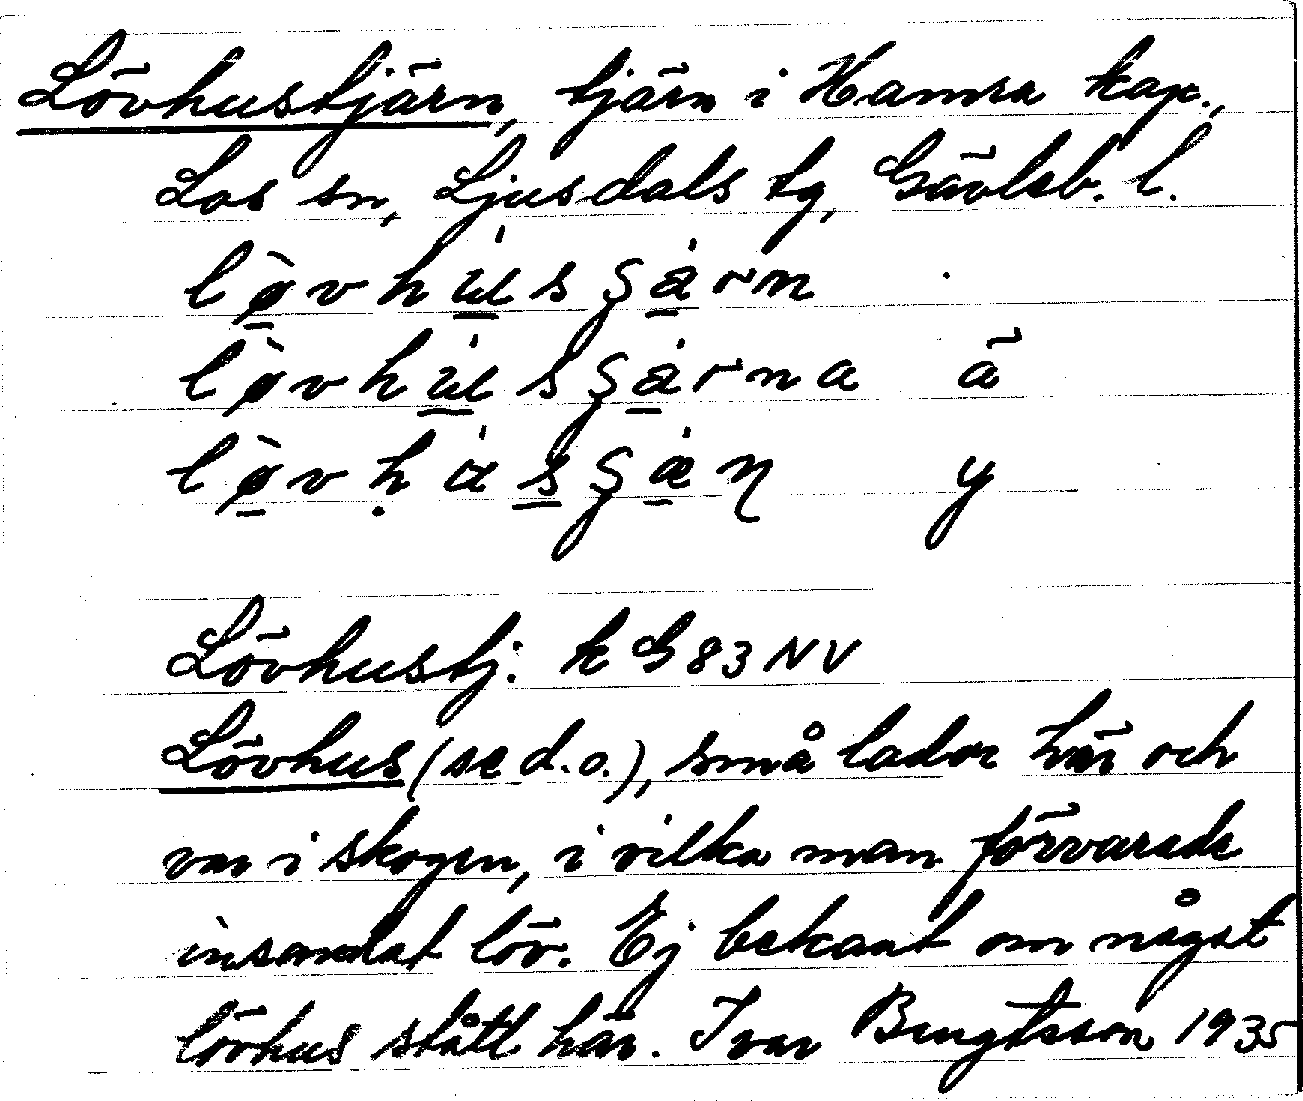 Lövhustjärn, tjärn i Hamra kap.,
Los sn, Ljusdals tg, Gävleb. l.
ä
y
Lövhustj. k G 83 NV
Lövhus (se d.o.), små lador här och
var i skogen, i vilka man förvarade
insamlat löv. Ej bekant om något
lövhus stått här. Ivar Bengtsson 1935